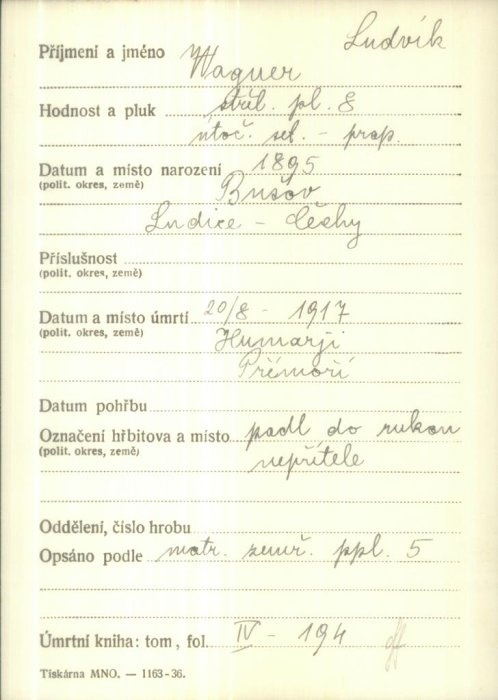 Ludvík
Příjmení a jméno Wagner
Hodnost a pluk střel. pl. 8
útoč. sel. - prap.
Datum a místo narození 1895
(polit. okres, země) Bušov
Ludice - Čechy
Příslušnost
(polit. okres, země)
Datum a místo úmrtí 20/8 - 1917
(polit. okres, země) Humarji
Přémoří
Datum pohřbu
Označení hřbitova a místo padl do rukou
(polit. okres, země) nepřítele
Oddělení, číslo hrobu
Opsáno podle matr. zemř. ppl. 5
Úmrtní kniha: tom, fol. IV - 194
Tiskárna MNO. — 1163-36.